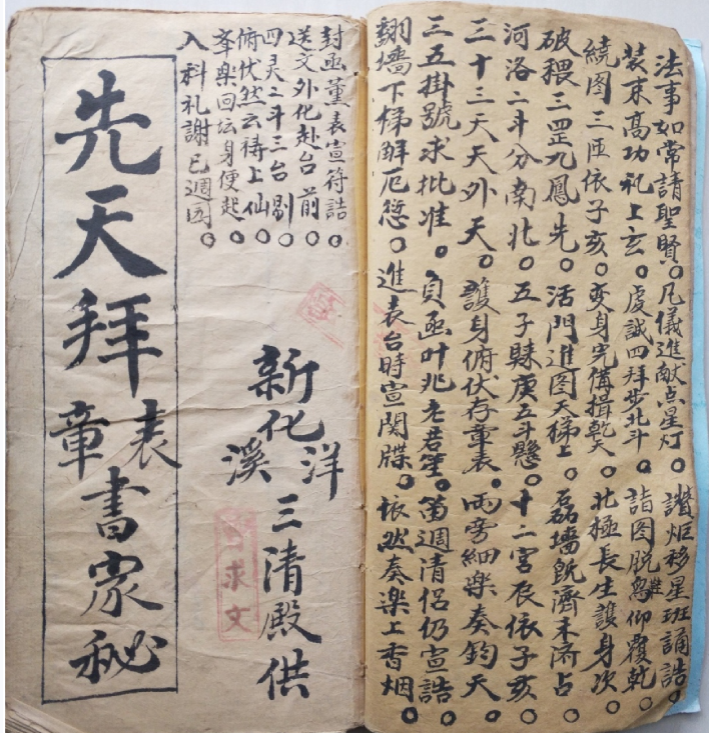 法事如常請聖賢。凡儀進献点星灯。讚炬移星班誦誥。
装束高功礼上玄。虔誠四拜步北斗。詣图脱舄仰覆乾。
繞图三匝依子亥。变身完備揖乾天。北極長生護身次。
破穢三罡九鳳先。活門進图天梯上。磊墻既濟未济占。
河洛二斗分南北。五子庚五斗懸。十二宮辰依子亥。
三十三天天外天。護身俯伏存章表。両旁細楽奏鈞天。
三五掛號求批准。負函叶兆老君笙。笛週清侣仍宣誥。
翻墻下梯解厄愆。進表台時宣関牒。依然奏楽上香烟。
封函薰表宣符誥。
送文外化赴台前。
四灵二斗三台剔。
俯伏然云禱上仙。
楽回坛身便起。
入科礼謝已週圆。
新化洋溪三清殿供
求文
先天拜表章書家秘